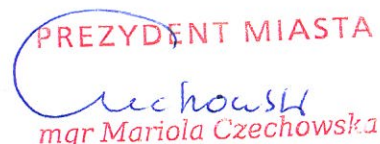 PREZYDENT MIASTA
Czechowska
mgr Mariola Czechowska